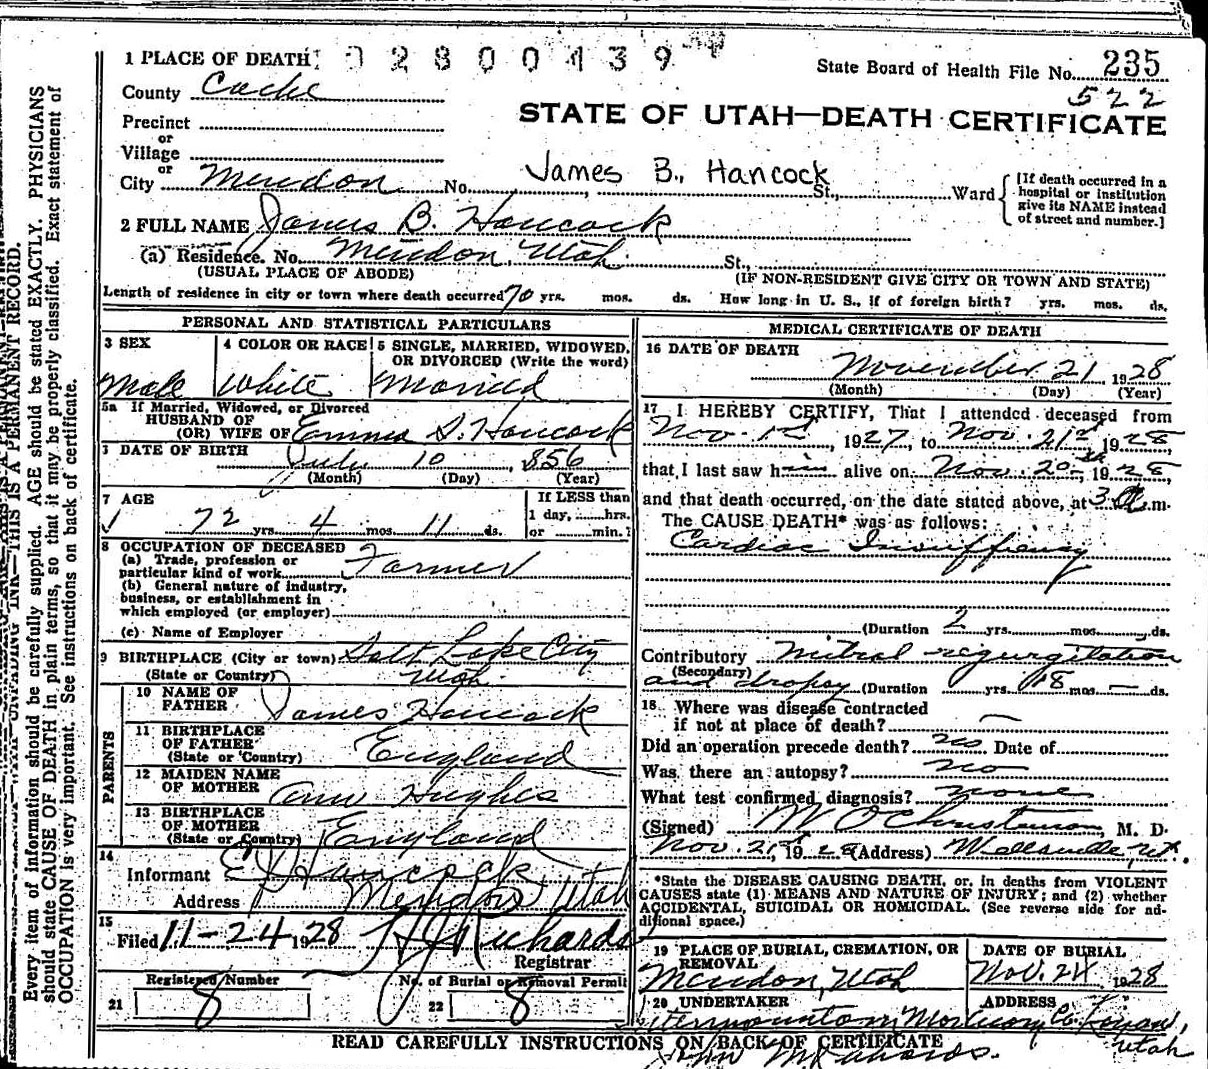 1 PLACE OF DEATH 0 2 8 0 0 4 3 9
State Board of Health File No. 235
522
County Cache
STATE OF UTAH—DEATH CERTIFICATE
Precinct
or
Village
or
City Mendon No. St., Ward
James B., Hancock
[If death occurred in a hospital or institution give its NAME instead of street and number.]
2 FULL NAME James B. Hancock
(a) Residence. No. Mendon, Utah. St.,
(USUAL PLACE OF ABODE) (IF NON-RESIDENT GIVE CITY OR TOWN AND STATE)
Length of residence in city or town where death occurred 70 yrs. mos. ds. How long in U. S., if of foreign birth? yrs. mos. ds.
PERSONAL AND STATISTICAL PARTICULARS
3 SEX
Male
4 COLOR OR RACE
White
5 SINGLE, MARRIED, WIDOWED, OR DIVORCED (Write the word)
Married
5a If Married, Widowed, or Divorced
HUSBAND OF
(OR) WIFE OF Emma S. Hancock
DATE OF BIRTH July 10, 1856
(Month) (Day) (Year)
7 AGE
72 yrs. 4 mos. 11 ds.
If LESS than
1 day, hrs.
or min.?
8 OCCUPATION OF DECEASED
(a) Trade, profession or
particular kind of work Farmer
(b) General nature of industry,
business, or establishment in
which employed (or employer)
(c) Name of Employer
9 BIRTHPLACE (City or town) Salt Lake City
(State or Country) Utah
PARENTS
10 NAME OF
FATHER James Hancock
11 BIRTHPLACE
OF FATHER England
(State or Country)
12 MAIDEN NAME
OF MOTHER Ann Hughes
13 BIRTHPLACE
OF MOTHER England
(State or Country)
14
Informant Hancock
Address Mendon Utah
15
Filed 11-24 1928 Richards
Registrar
Registered Number
21 8
No. of Burial or Removal Permit
22 8
MEDICAL CERTIFICATE OF DEATH
16 DATE OF DEATH
November 21, 1928
(Month) (Day) (Year)
17 I HEREBY CERTIFY, That I attended deceased from
Nov. 1st, 1927, to Nov. 21st, 1928
that I last saw him alive on Nov. 20th, 1928
and that death occurred, on the date stated above, at 3 a.m.
The CAUSE DEATH* was as follows:
Cardiac Insuffiency
(Duration 2 yrs. mos. ds.
Contributory Mitral regurgitation
(Secondary)
and dropsy (Duration yrs. 18 mos. — ds.
18 Where was disease contracted
if not at place of death? —
Did an operation precede death? no Date of
Was there an autopsy? no
What test confirmed diagnosis? none
(Signed) M. D.
Nov. 21st, 1928 (Address) Wellsville, Ut.
*State the DISEASE CAUSING DEATH, or, in deaths from VIOLENT
CAUSES state (1) MEANS AND NATURE OF INJURY; and (2) whether
ACCIDENTAL, SUICIDAL OR HOMICIDAL. (See reverse side for ad-
ditional space.)
19 PLACE OF BURIAL, CREMATION, OR
REMOVAL
Mendon, Utah
DATE OF BURIAL
Nov. 24 1928
20 UNDERTAKER
ADDRESS
Intermountain Mortuary Co. Logan,
Utah
READ CAREFULLY INSTRUCTIONS ON BACK OF CERTIFICATE
John Richards.
Every item of information should be carefully supplied. AGE should be stated EXACTLY. PHYSICIANS
should state CAUSE OF DEATH in plain terms, so that it may be properly classified. Exact statement of
OCCUPATION is very important. See instructions on back of certificate.
THIS IS A PERMANENT RECORD.